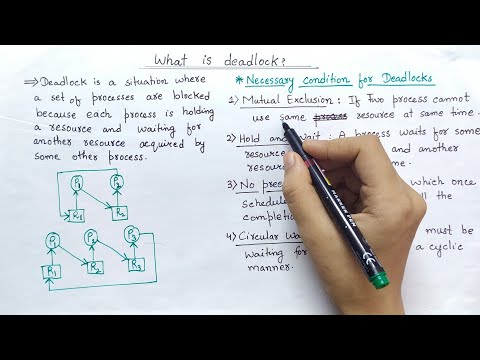 What is deadlock?
⇒ Deadlock is a situation where
a set of processes are blocked
because each process is holding
a resource and waiting for
another resource acquired by
some other process.
P1 P2
R1 R2
P1 P2 P3
R1 R2 R3
* Necessary condition for Deadlocks
1) Mutual Exclusion : If Two process cannot
use same resource at same time.
2) Hold and wait : A process waits for some
resource and another
resource
3) No pre which once
schedul till the
completio
4) Circular wa must be
waiting for a cyclic
manner.